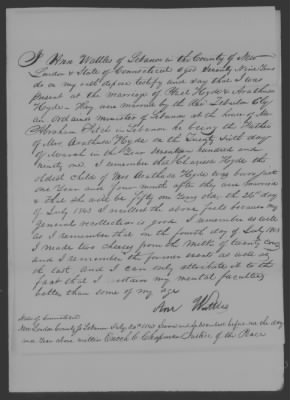 I Ann Wattles of Lebanon in the County of New
London & State of Connecticut aged Seventy Nine Years
do on my oath depose testify and say that I was
present at the marriage of Hyde & Arathusa
Hyde - they were married by the
an ordained minister of Lebanon at the house of
Abraham Fitch in Lebanon he being the Father
of Mrs Arathusa Hyde on the Twenty sixth day
of March in the Year Seventeen hundred and
ninety one. I remember that Clarissa Hyde the
oldest child of Mrs Arathusa Hyde was born just
one Year and four months after they were married
& that she will be fifty one Years old the 26th day
of July 1843 I recollect the above facts because my
general recollection is good. I remember as well
as I remember that on the fourth day of July
I made two cheeses from the milk of twenty cows
and I remember the former event as well as
the last and I can only attribute it to the
fact that I retain my mental faculties
better than some of my age
Ann Wattles
State of Connecticut
New London County ss Lebanon July 20th 1843 Sworn and subscribed before me the day
and Year above written Enoch C Chapman Justice of the Peace